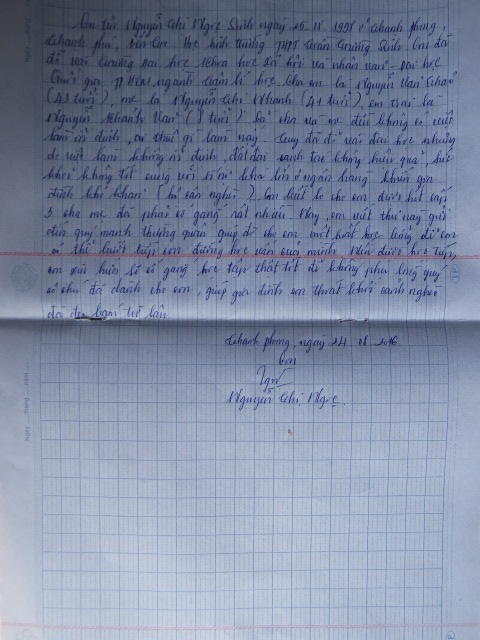 Em tên Nguyễn Thị Ngọc Sinh ngày 25 1998 ở Thạnh phong,
Thạnh phú, Bến Tre. Học sinh trường THPT Trần Trường Sinh. Em đã
đỗ vào trường Đại học khoa học xã hội và nhân văn - Đại học
Quốc gia TP.HCM, ngành tâm lí học. Cha em là Nguyễn Văn
(43 tuổi), mẹ là Nguyễn Thị (41 tuổi), em trai là
Nguyễn Văn (8 tuổi) ba cha và mẹ đều không có việc
làm ổn định, ai thuê gì làm nấy. Tuy đã đỗ vào đại học nhưng
do việc làm không ổn định, đất đai canh tác không hiệu quả, sức
khỏe không tốt cùng với số nợ khá lớn ở ngân hàng khiến gia
đình khó khăn (hộ cận nghèo). Em biết lo cho em được hết cấp
3 cha mẹ đã phải cố gắng rất nhiều. Nay, em viết thư này gửi
đến quý mạnh thường quân giúp đỡ cho em một suất học bổng để em
có thể bước tiếp con đường học vấn của mình. Nếu được học tiếp,
em xin hứa sẽ cố gắng học tập thật tốt để không phụ lòng quý
vị đã dành cho em, giúp gia đình em thoát khỏi cảnh nghèo
đã đeo bám từ lâu.
Thạnh phong, ngày 24 2016
Em
Ngọc
Nguyễn Thị Ngọc